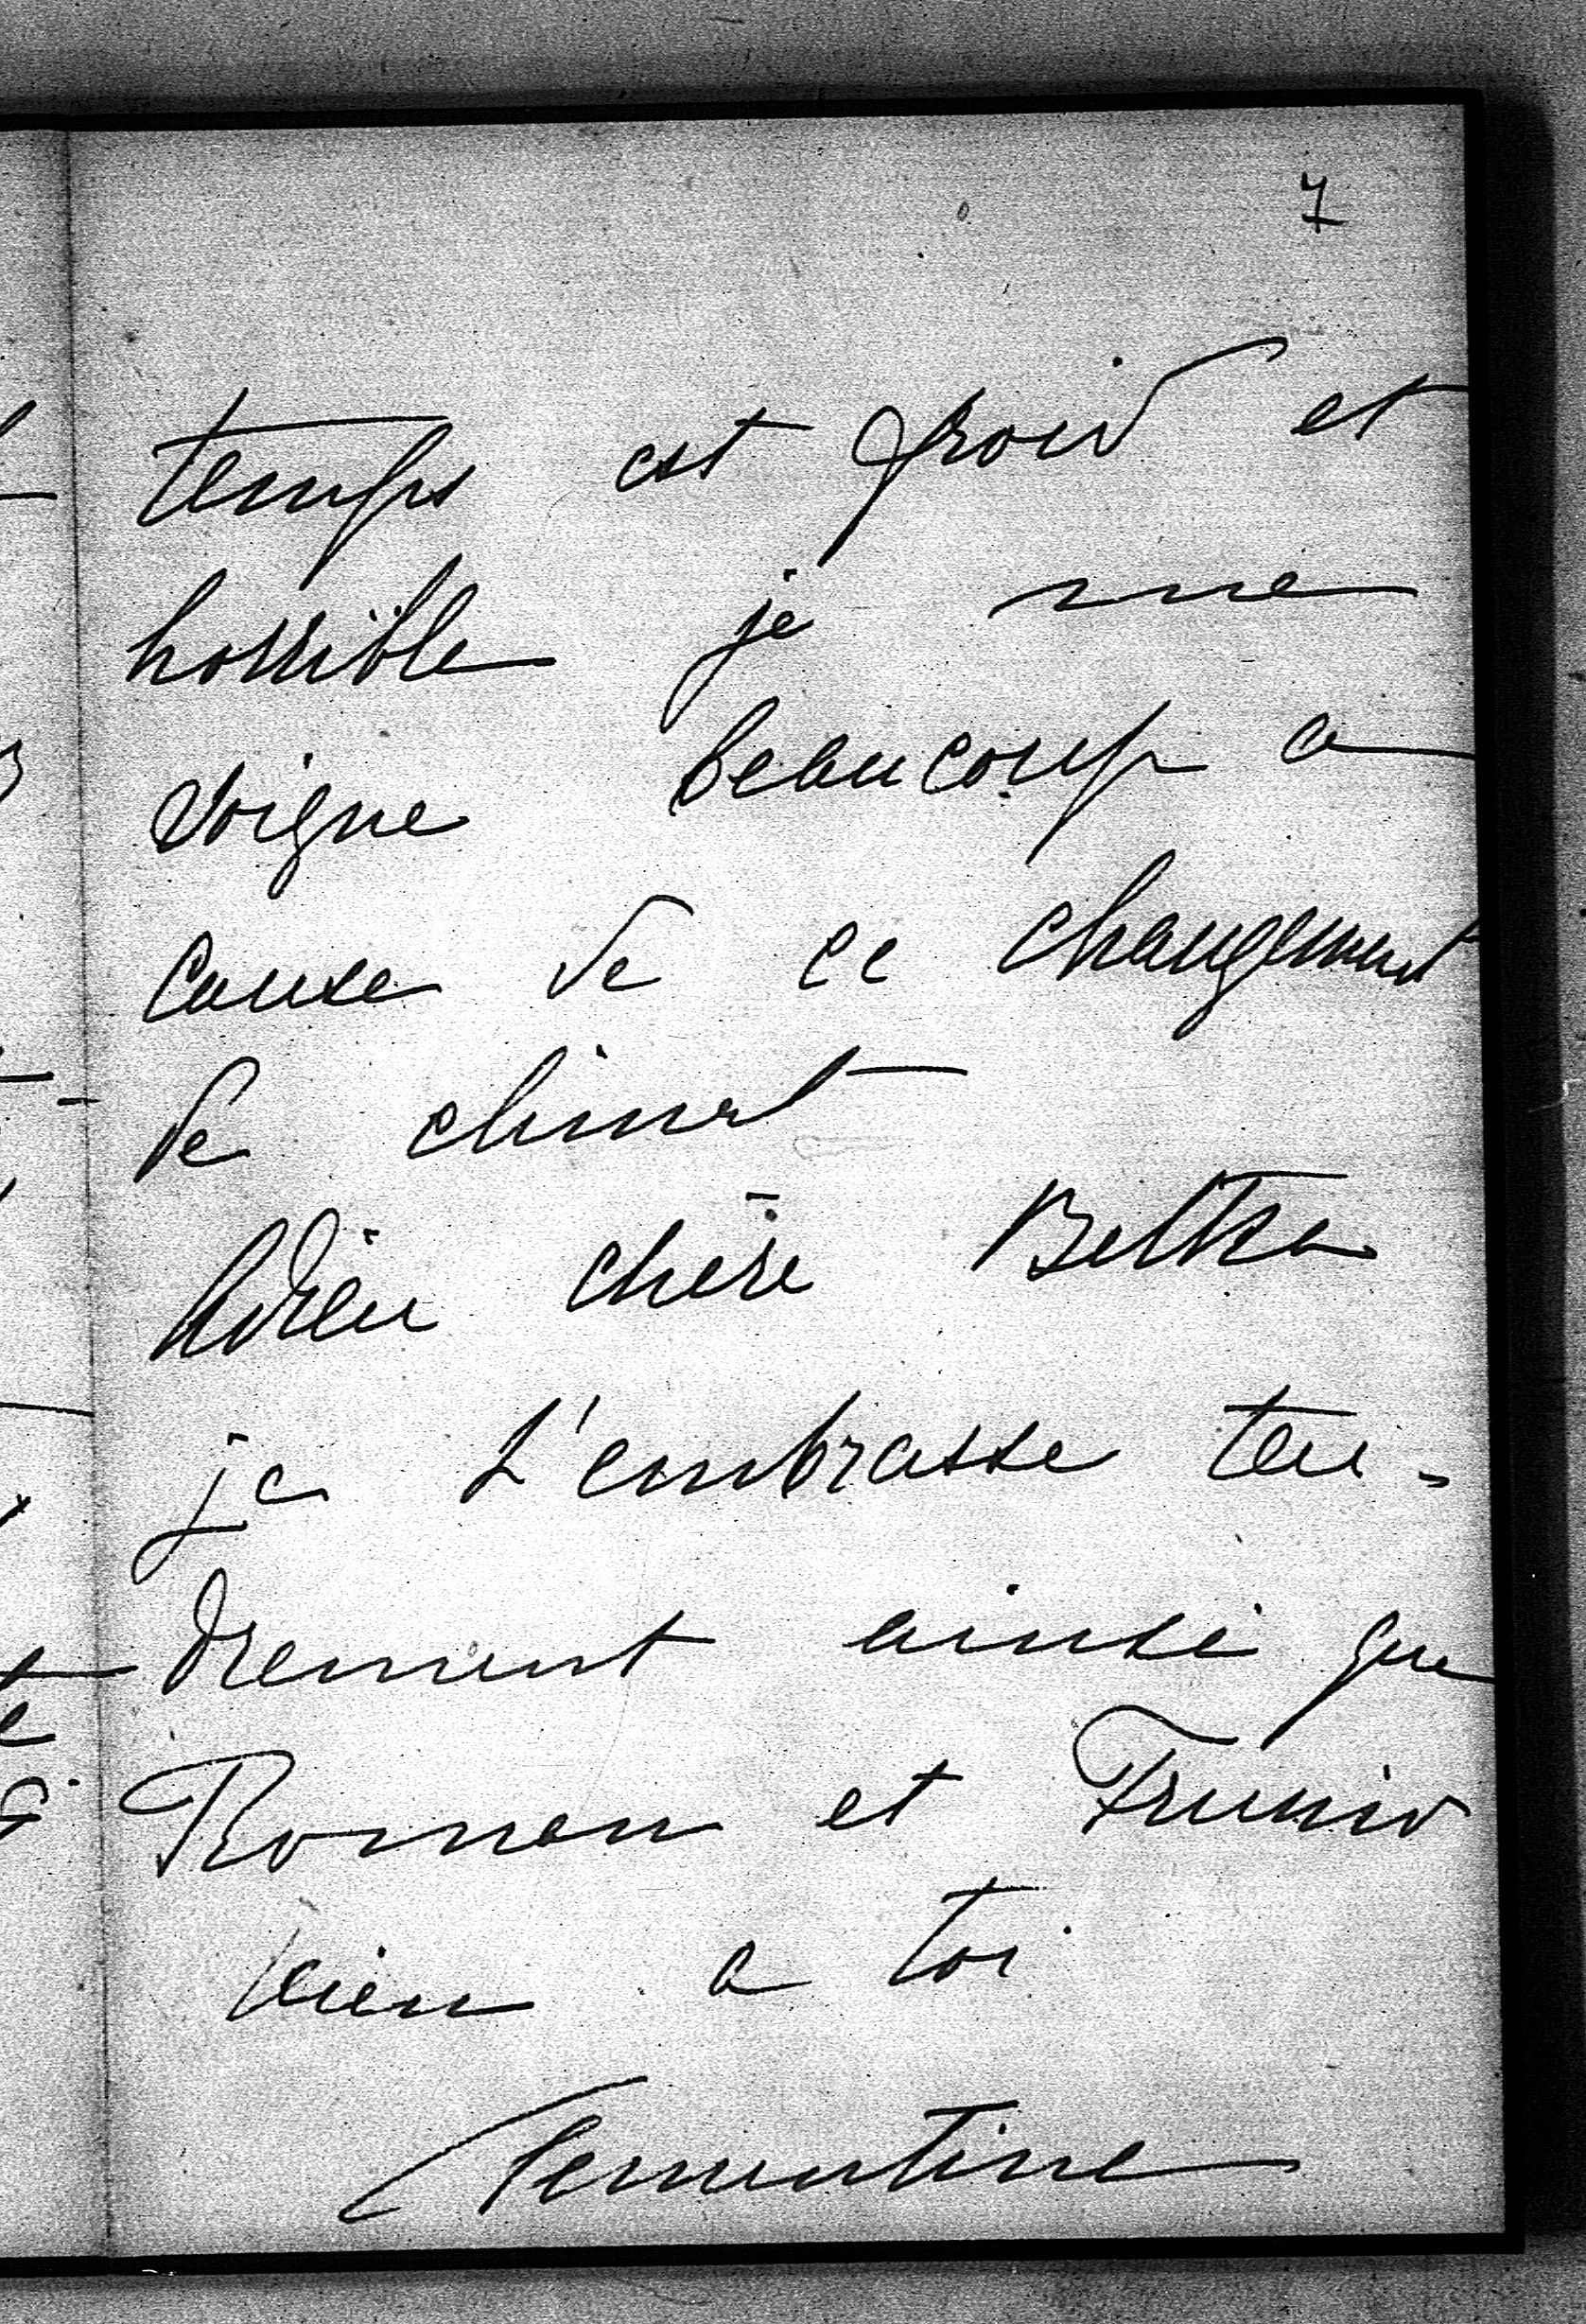 7
temps est froid et
horrible je me
soigne beaucoup a
cause de ce changement
de climat
Adieu chère Betka
je t'embrasse ten-
drement ainsi que
Roman et
bien a toi
Clementine